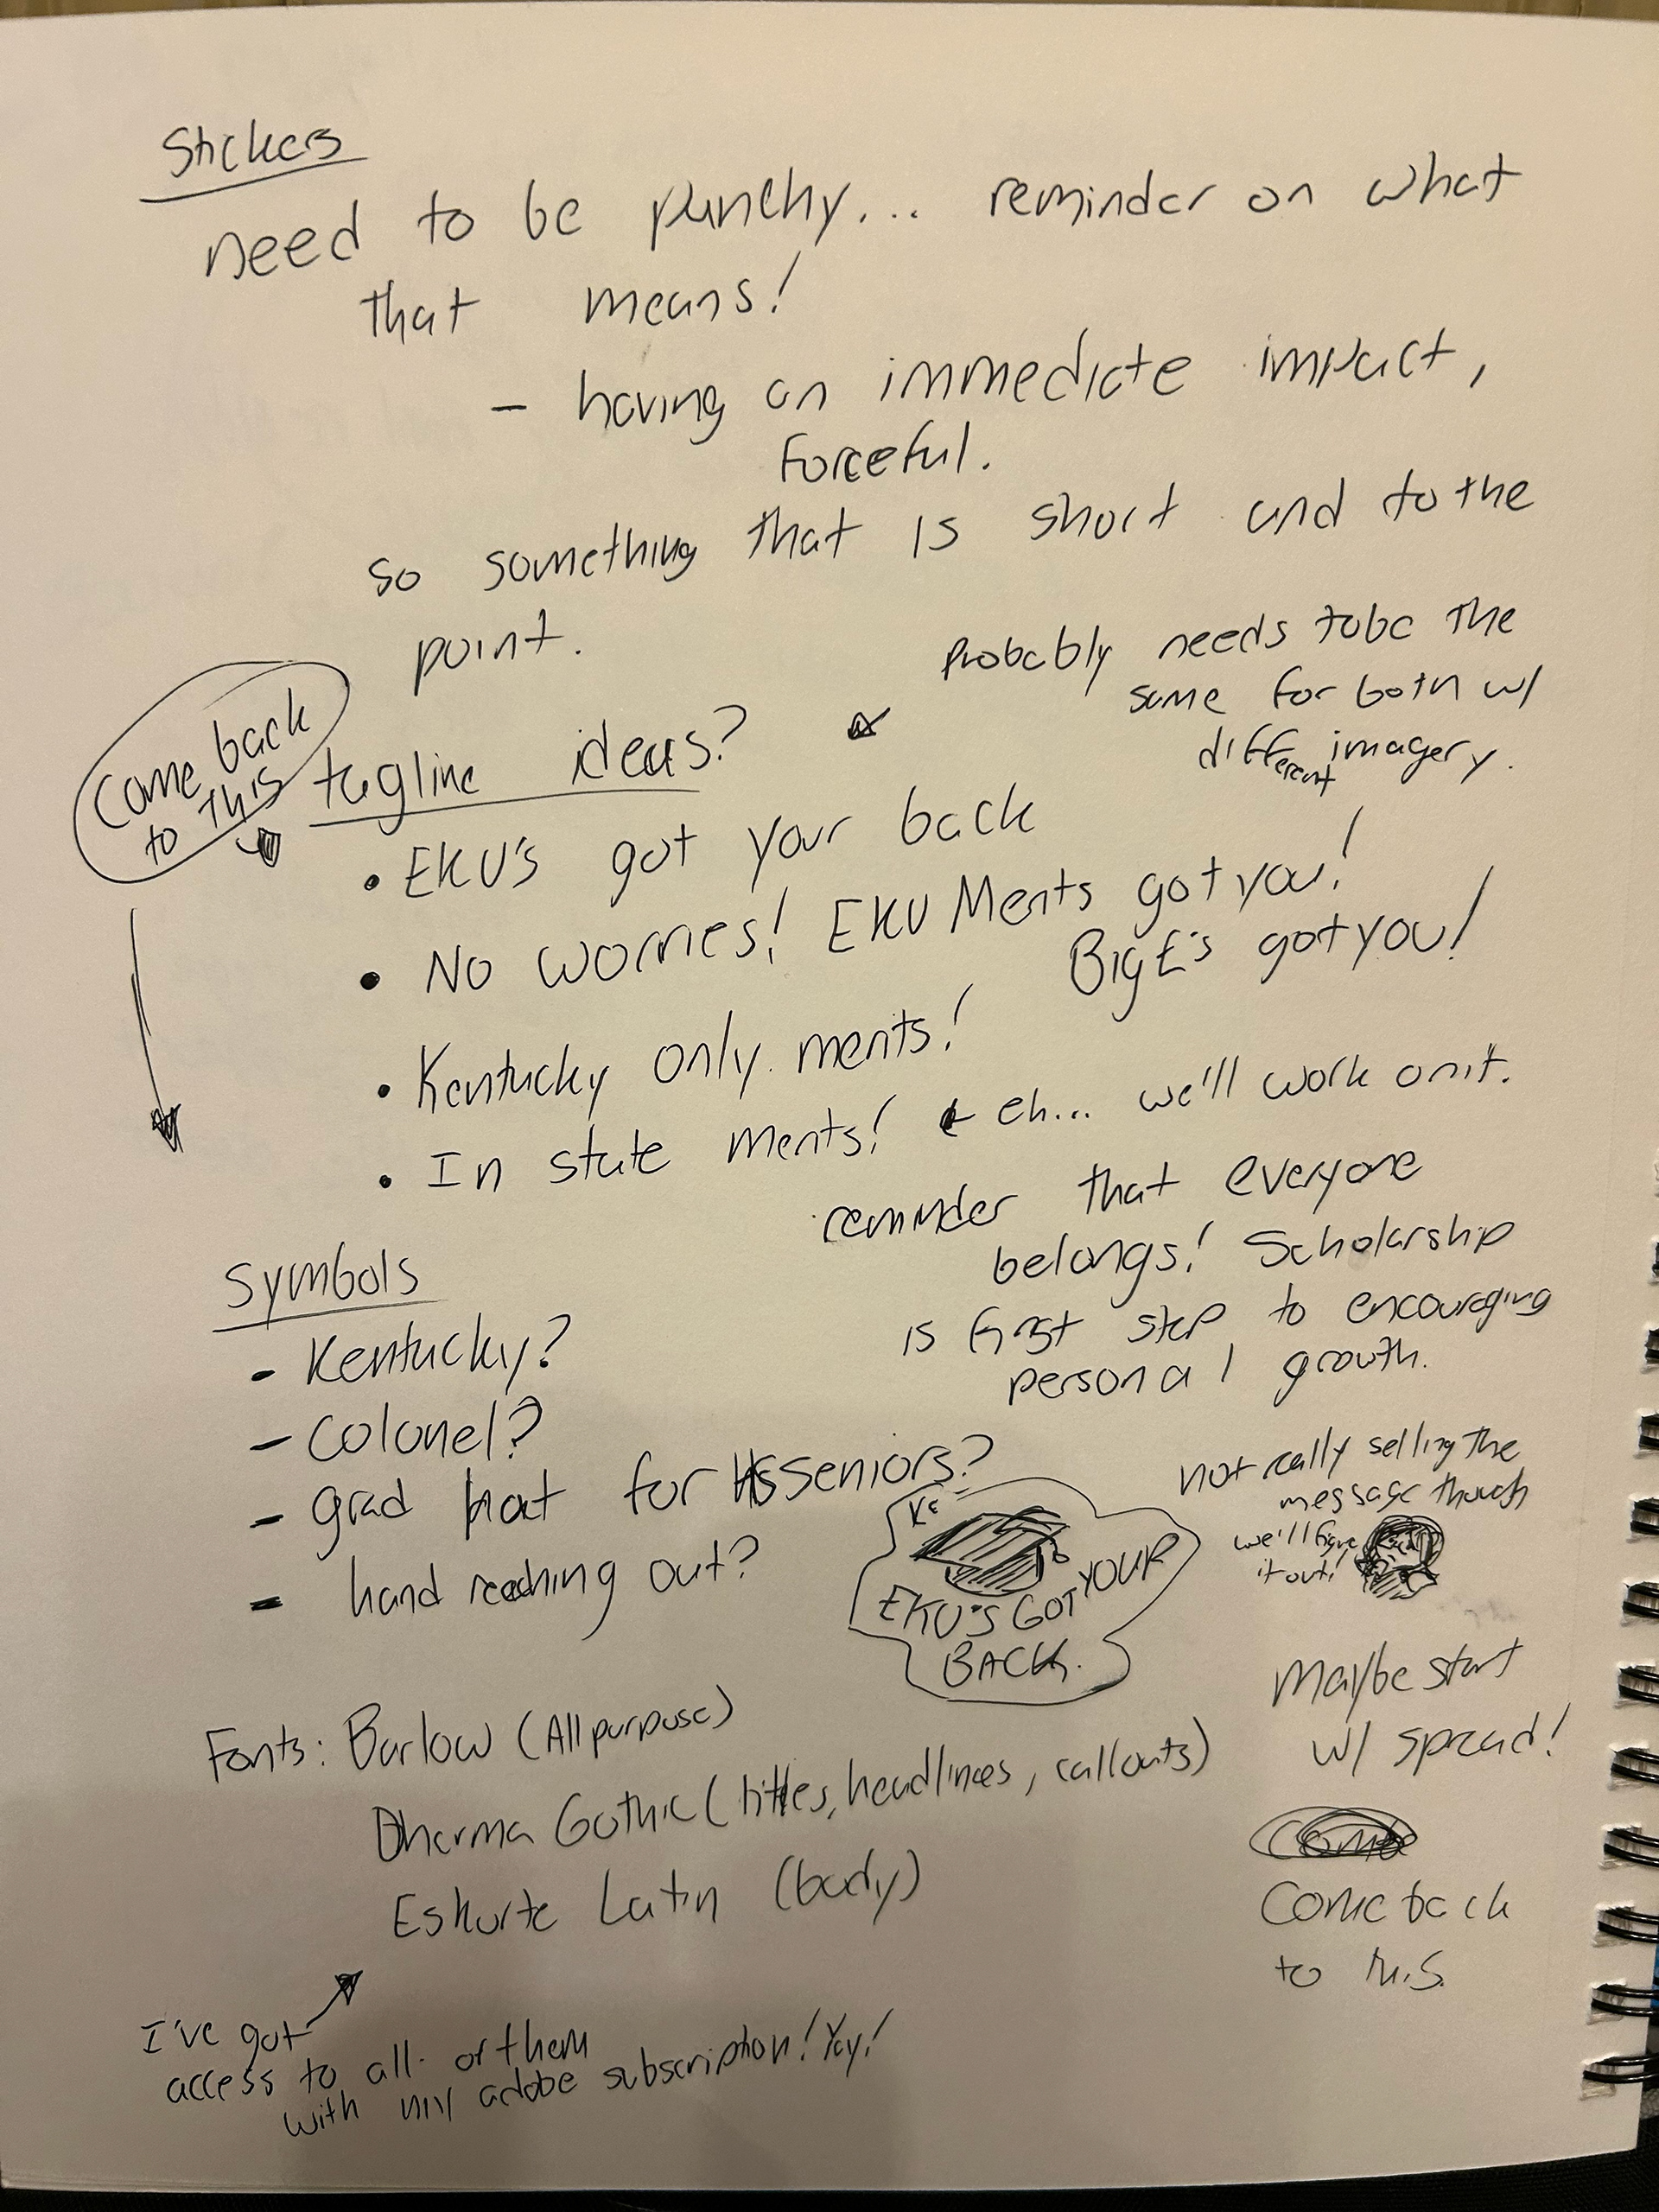 Stickers
need to be punchy... reminder on what
that means!
- having an immediate impact,
forceful.
so something that is short and to the
point.
Probably needs to be the
same for both w/
different imagery.
Come back
to this
tagline ideas?
• EKU's got your back
• No worries! EKU Merits got you!
Big E's got you!
• Kentucky only merits!
• In state merits! ← eh... we'll work on it.
reminder that everyone
belongs! Scholarship
is first step to encouraging
personal growth.
Symbols
- Kentucky?
- Colonel?
- grad hat for HS seniors?
- hand reaching out?
not really selling the
message though
we'll figure
it out!
KE
EKU'S GOT YOUR
BACK.
Maybe start
w/ spread!
Fonts: Barlow (All purpose)
Dharma Gothic (titles, headlines, callouts)
Eskorte Latin (body)
Come
Come back
to this.
I've got
access to all of them
with my adobe subscription! Yay!